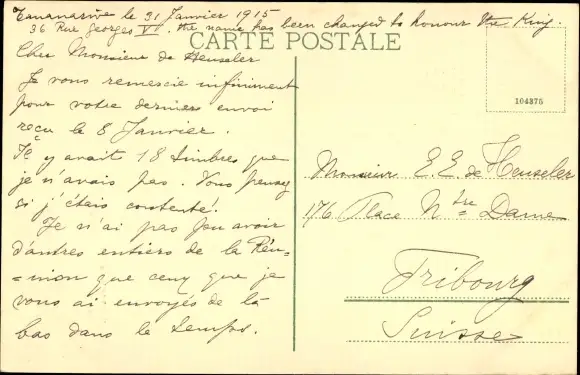 Tananarive le 31 Janvier 1915
36 Rue Georges VI. the name has been changed to honour the King.
CARTE POSTALE
104375
Cher Monsieur de Heuseler
Je vous remercie infiniment
pour votre dernier envoi
reçu le 8 Janvier.
Il y avait 18 timbres que
je n'avais pas. Vous pensez
si j'étais contenté!
Je n'ai pas pu avoir
d'autres entiers de la Réu=
=nion que ceux que je
vous ai envoyés de là
bas dans le temps.
Monsieur E. E. de Heuseler
176 Place Ntre Dame
Fribourg
Suisse